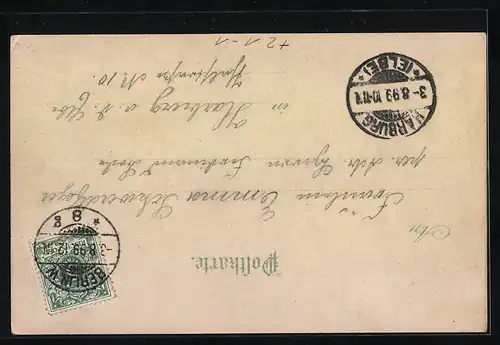 Postkarte.
An
Fräulein Emma
per Adr. Herrn Ferdinand
in Harburg a. d. Elbe
N. 10.
+21-1
HARBURG
3-8.99.10-11V.
*(ELBE)*
BERLIN W.
3-8.99.12-1N.
* 8 g